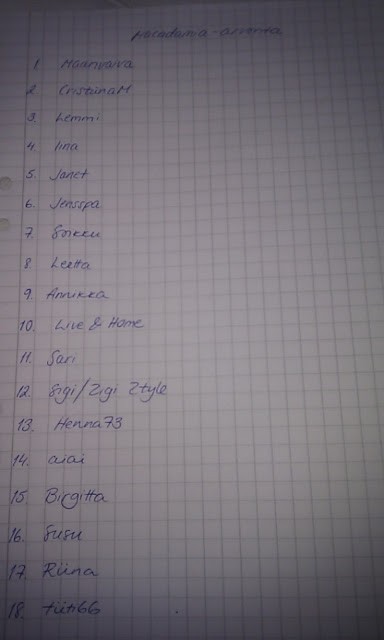 Macadamia-arvonta
1 Maanvaiva
2 CristiinaM
3. Lemmi
4. Iina
5. Janet
6. Jensspa
7. Soikku
8. Leetta
9. Annukka
10. Live & Home
11. Sari
12. Sigi/Zigi Ztyle
13. Henna73
14. aiai
15 Birgitta
16. Susu
17. Riina
18. tiiti66